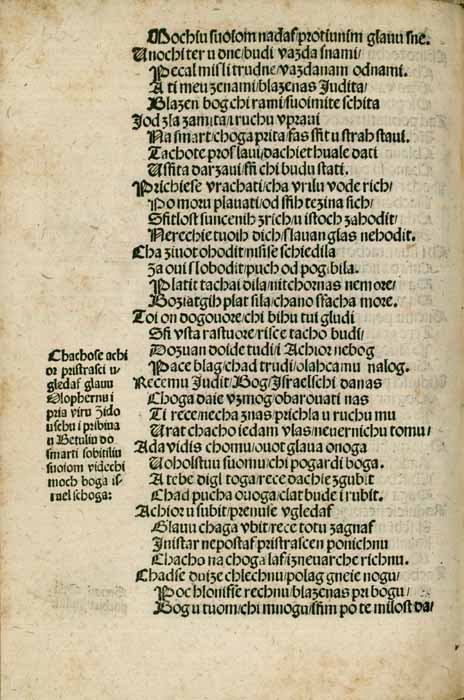 Mochiu suoiom nadas/protiunim glauu sne.
Unochi ter u dne/budi vazda snami/
Pecal misli trudne/vazdanam odnami.
A ti meu zenami/blazenas Judita/
Blazen bog chi rami/suoimite schita
Jod zla zamita/i ruchu vpraui
Na smart/choga prita/sas sfit u strah staui.
Tachote proslaui/dachiet huale dati
Usfita darzaui/ssi chi budu stati.
Prichiese vrachati/cha vrilu vode rich/
Po moru plauati/od sfih tezina sich/
Sfitlost suncenih zrich/u istoch zahodit/
Nerechie tuoih dich/slauan glas nehodit.
Cha ziuot ohodit/nisise schiedila
Za oui slobodit/puch od pogibila.
Platit tachai dila/nitchornas nemore/
Boziatgih plat sila/chano stacha more.
Toi on dogouore/chi bihu tui gludi
Sfi vsta rastuore/risce tacho budi/
Dozuan doide tudi/i Achior nebog
Pace blag/chad trudi/olahcamu nalog.
Recemu Judit/Bog/Israelschi danas
Choga daie vzmog/obarouati nas
Ti rece/necha znas/prichla u ruchu mu
Urat chacho iedam vlas/neuernichu tomu/
Ada vidis chomu/ouot glaua onoga
Uoholstuu suomu/chi pogardi boga.
A tebe digl toga/rece dachie zgubit
Chad pucha ouoga/clat bude i rubit.
Achior u subit/prenuse vgledaf
Glauu chaga vbit/rece totu zagnaf
Inistar nepostaf pristrascen ponichnu
Chacho na choga las/izneuarche richnu.
Chadse duize chlechnu/polag gneie nogu/
Pochlonisse rechnu/blazenas pri bogu/
Bog u tuom/chi mnogu/sfim po te milost da/
Chachose achi
or pristrasci v-
gledas glauu
Olophernu i
pria viru Zido
uschu i pribiua
u Betuliu do
smarti sobitiliu
suoiom videchi
moch boga is-
rael schoga: